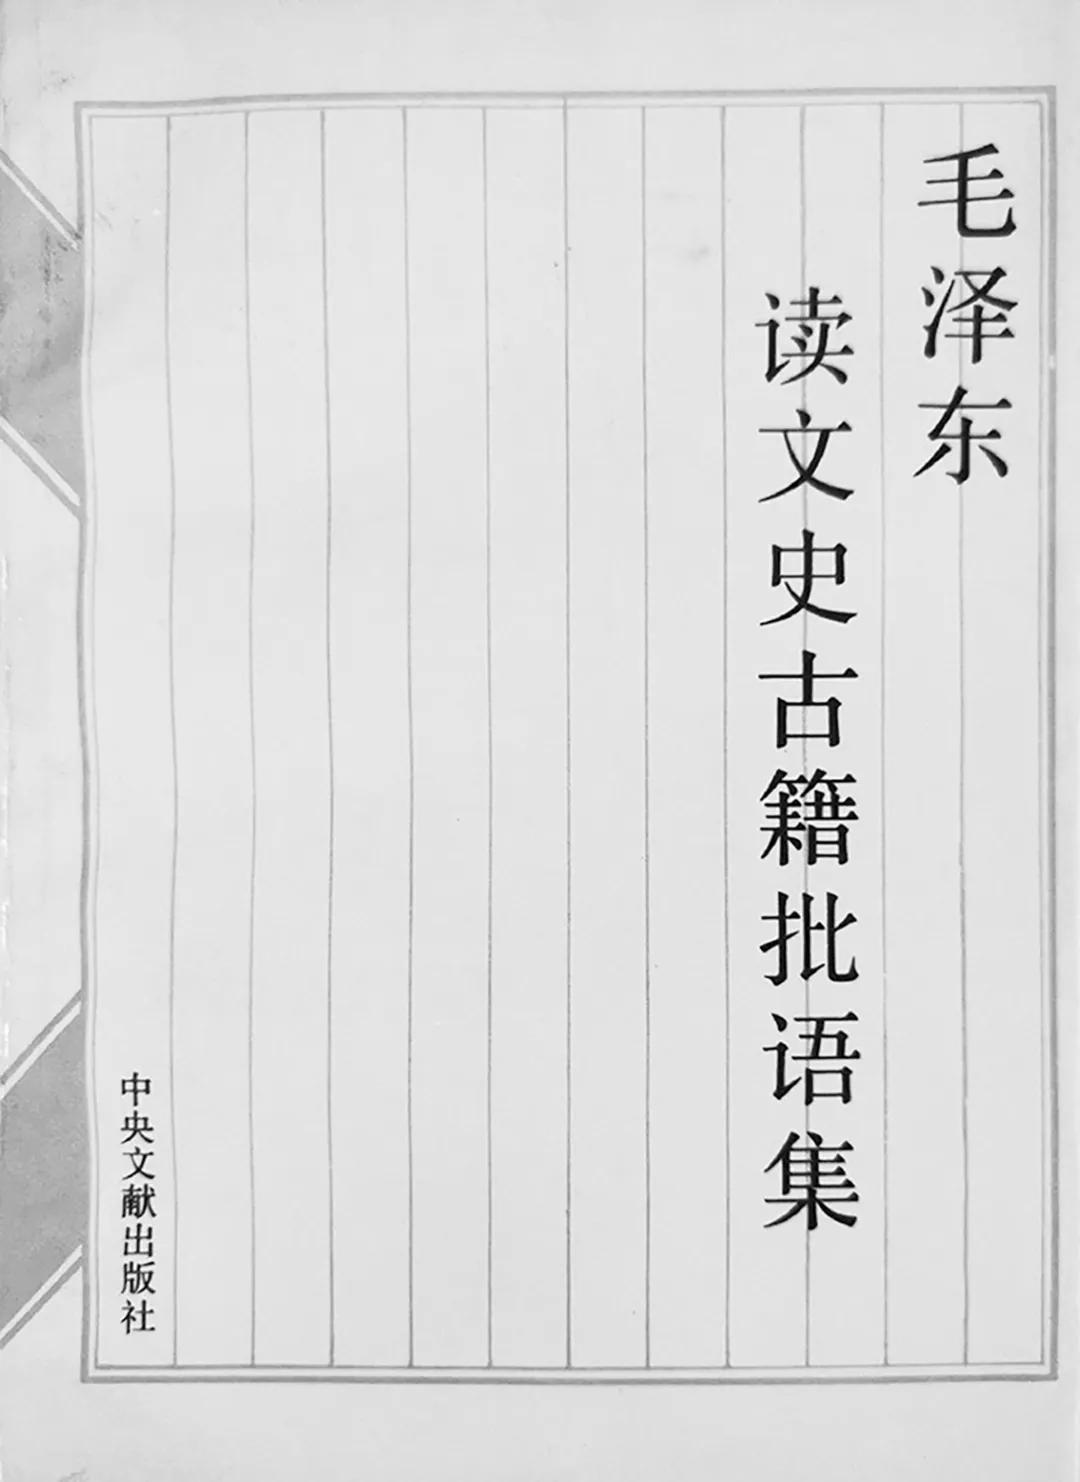 毛泽东
读文史古籍批语集
中央文献出版社